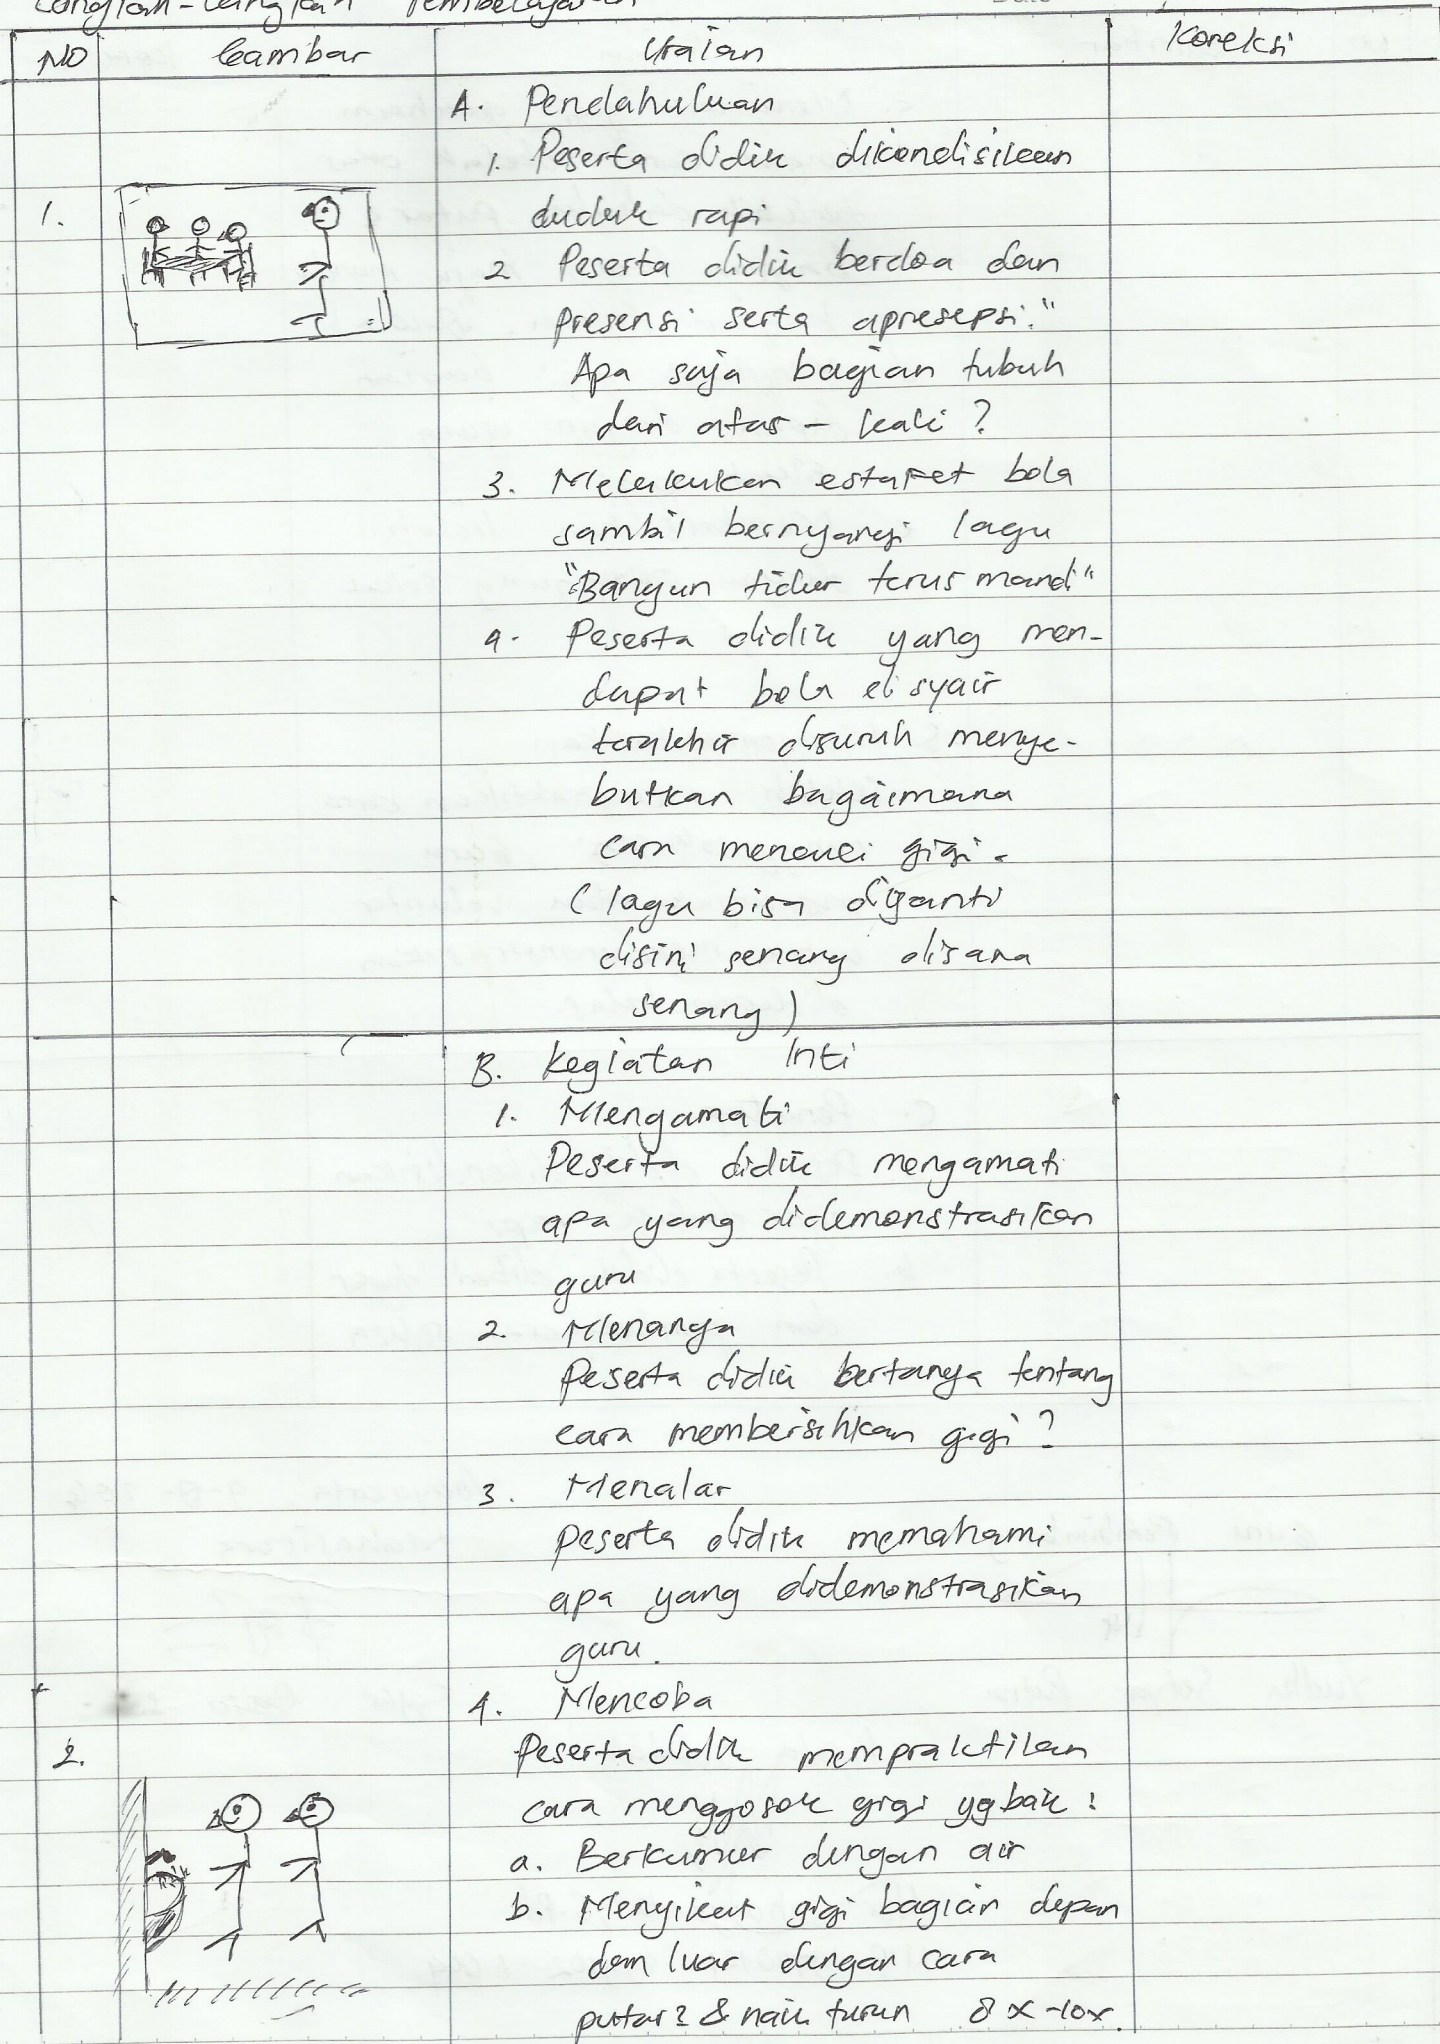 Langkah-langkah Pembelajaran
NO Gambar Uraian Koreksi
A. Pendahuluan
1. Peserta didik dikondisikan
1. duduk rapi
2 Peserta didik berdoa dan
presensi serta apresepsi."
Apa saja bagian tubuh
dari atas - kaki ?
3. Melakukan estafet bola
sambil bernyanyi lagu
"Bangun tidur terus mandi"
4. Peserta didik yang men-
dapat bola di syair
terakhir disuruh menye-
butkan bagaimana
cara mencuci gigi.
( lagu bisa diganti
disini senang disana
senang )
B. Kegiatan Inti
1. Mengamati
Peserta didik mengamati
apa yang didemonstrasikan
guru
2. Menanya
Peserta didik bertanya tentang
cara membersihkan gigi ?
3. Menalar
Peserta didik memahami
apa yang didemonstrasikan
guru.
4. Mencoba
2. Peserta didik mempraktikan
cara menggosok gigi yg baik :
a. Berkumur dengan air
b. Menyikat gigi bagian depan
dan luar dengan cara
putar2 & naik turun 8x-10x.